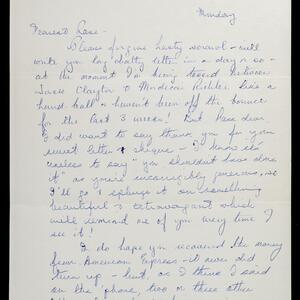 Monday
Dearest Rose -
Please forgive hasty scrawl - will
write you long chatty letter in a day or so -
at the moment I'm being tossed between
Jack Clayton to Mordecai Richler like a
hand ball & haven't been off the bounce
for the last 3 weeks! But Rose dear
I did want to say thank you for your
sweet letter & cheque - I know it's
useless to say "you shouldn't have done
it" as you're incorrigibly generous, so
I'll go & splurge it on something
beautiful & extravagant which
will remind me of you every time I
see it!
I do hope you recovered the money
from American Express - it never did
turn up - but, as I think I said
on the 'phone, two or three other